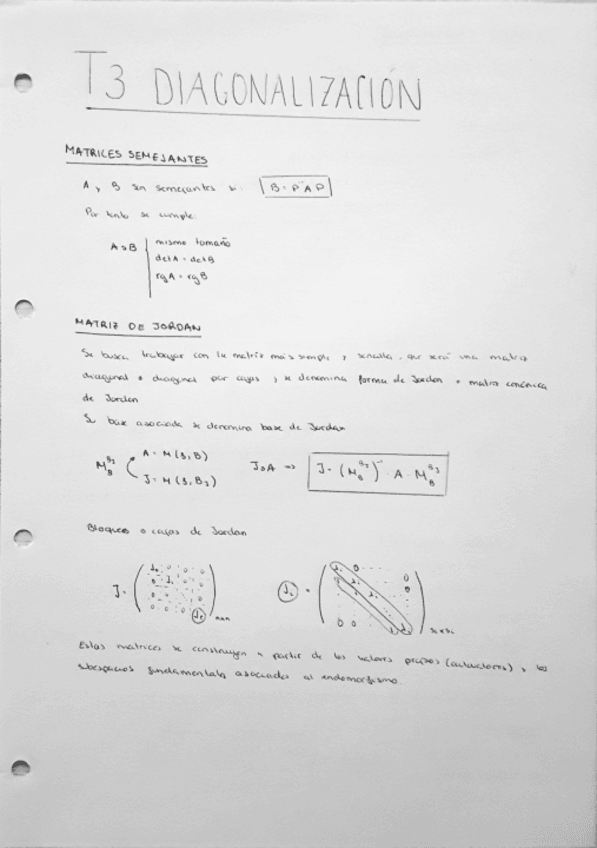 T3 DIAGONALIZACIÓN
MATRICES SEMEJANTES
A y B son semejantes si: B = P⁻¹AP
Por tanto se cumple:
A ∘ B | mismo tamaño
det A = det B
rg A = rg B
MATRIZ DE JORDAN
Se busca trabajar con la matriz más simple y sencilla, que será una matriz
diagonal o diagonal por cajas, y se denomina forma de Jordan o matriz canónica
de Jordan
Su base asociada se denomina base de Jordan
A = M(f,B)
J = M(f,B_J)
J ∘ A ⇒ J = (M_B^{B_J})⁻¹ · A · M_B^{B_J}
Bloques o cajas de Jordan
J =
n×n
J_i =
Estas matrices se construyen a partir de los valores propios (autovalores) y los
subespacios fundamentales asociados al endomorfismo.